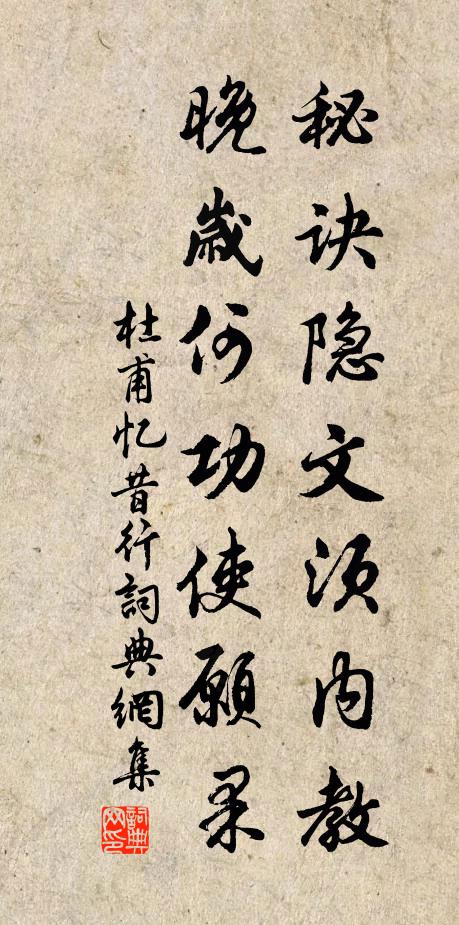 秘诀隐文须内教
晚岁何功使愿果
杜甫忆昔行詞典網集
詞典网印